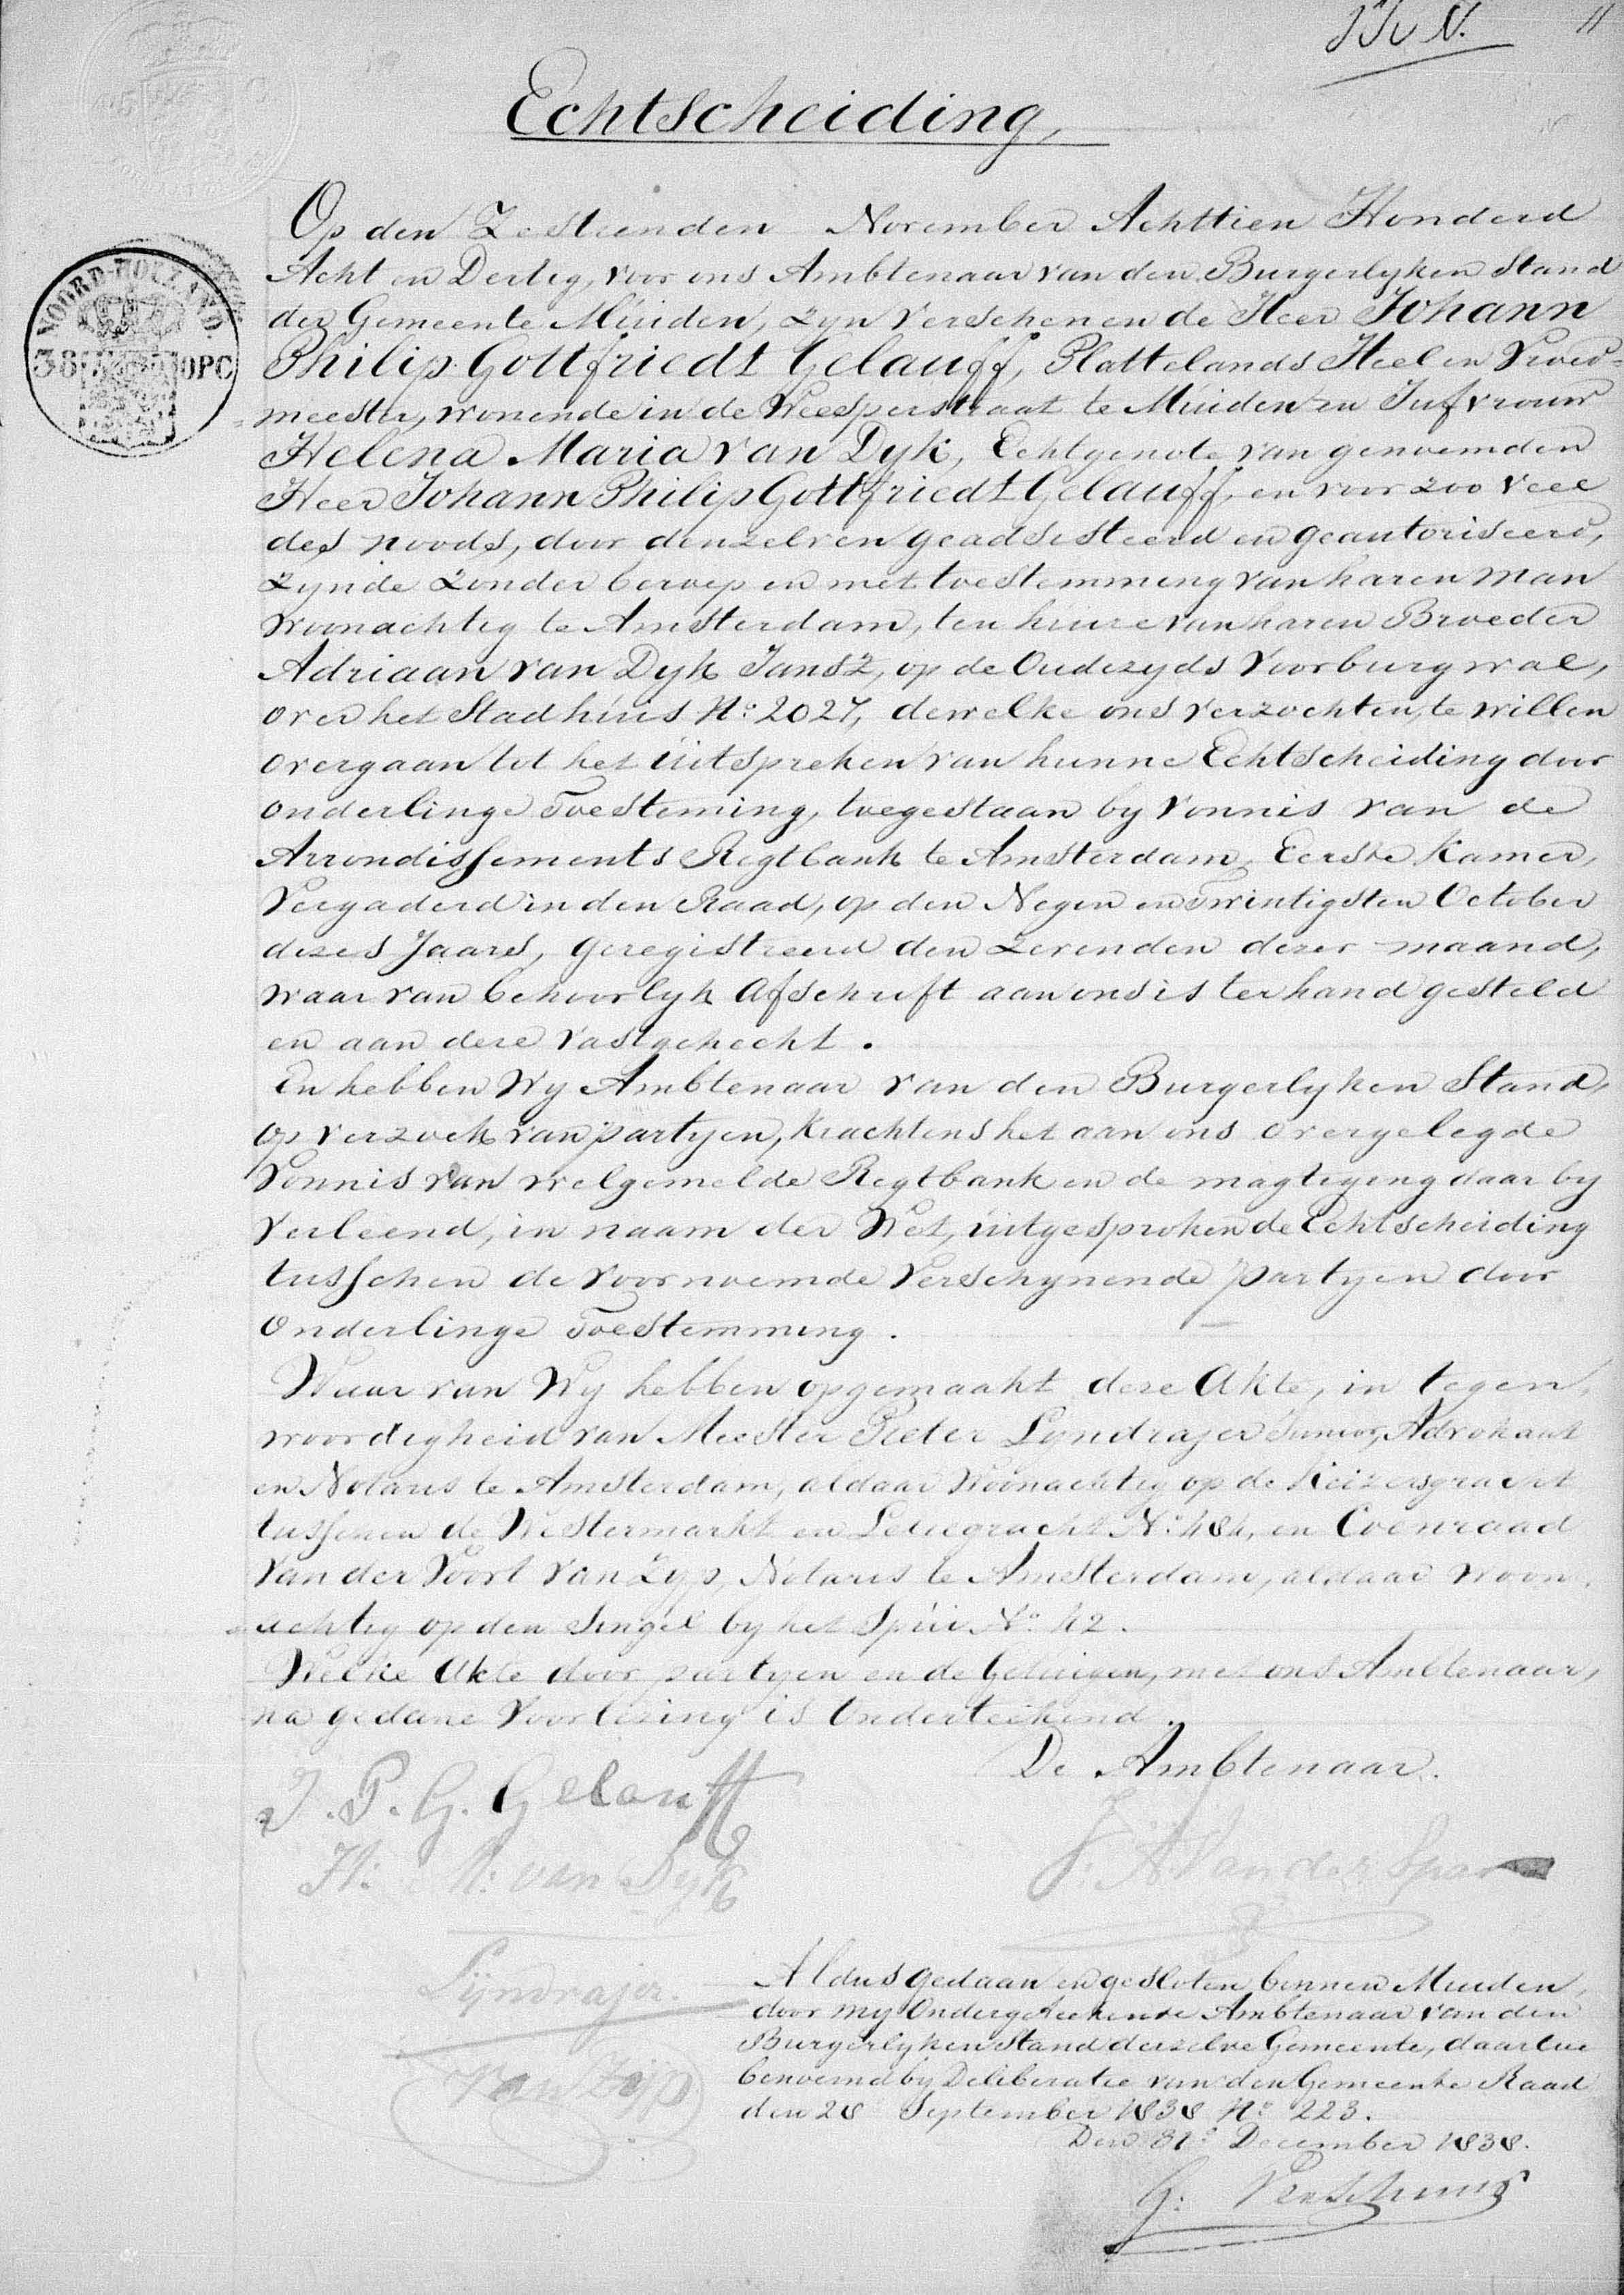 11
Echtscheiding,
Op den Zestienden November Achttien Honderd
Acht en Dertig, voor ons Ambtenaar van den Burgerlyken Stand
der Gemeente Muiden, zyn verschenen de Heer Johann
NOORD-HOLLAND.
38 OPC
Philip Gottfriedt Gelauff, Plattelands Heel en Vroed-
meester, wonende in de Weesperstraat te Muiden en Jufvrouw
Helena Maria van Dyk, Echtgenote van genoemden
Heer Johann Philip Gottfriedt Gelauff, en voor zoo veel
des noods, door denzelven geadsisteerd en geautoriseerd,
zynde zonder beroep en met toestemming van haren man
woonachtig te Amsterdam, ten huize van haren Broeder
Adriaan van Dyk Jansz, op de Oudezyds Voorburgwal,
over het Stadhuis No: 2027, dewelke ons verzochten, te willen
overgaan tot het uitspreken van hunne Echtscheiding door
onderlinge Toesteming, toegestaan by Vonnis van de
Arrondissements Regtbank te Amsterdam, Eerste Kamer,
Vergaderd in den Raad, op den Negen en twintigsten October
dezes Jaars, geregistreerd den zevenden dezer maand,
waar van behoorlyk Afschrift aan ons is ter hand gesteld
en aan deze vastgehecht.
En hebben Wy Ambtenaar van den Burgerlyken Stand,
op verzoek van partyen, krachtens het aan ons overgelegde
Vonnis van welgemelde Regtbank en de magtiging daar by
verleend, in naam der Wet, uitgesproken de Echtscheiding
tusschen de voornoemde Verschynende partyen door
Onderlinge Toestemming.
Waar van Wy hebben opgemaakt deze Akte, in tegen,
woordigheid van Meester Pieter Lyndrajer Junior, Advokaat
en Notaris te Amsterdam, aldaar woonachtig op de Keizersgracht
tusschen de Westermarkt en Leliegracht No: 484, en Coenraad
Van der Voort van Zyp, Notaris te Amsterdam, aldaar woon,
achtig op den Singel by het Spui No. 42.
Welke Akte door partyen en de Getuigen, met ons Ambtenaar,
na gedane Voorlezing is Onderteekend.
De Ambtenaar.
J. P. G. Gelauff
H: M: van Dyk
J: A Van der Spar
Lyndrajer.
van Zijp
Aldus gedaan en gesloten binnen Muiden,
door my Ondergeteekende Ambtenaar van den
Burgerlyken Stand derzelve Gemeente, daartoe
benoemd by Deliberatie van den Gemeente Raad
den 28 September 1838 No 223.
Den 31e December 1838.
G: